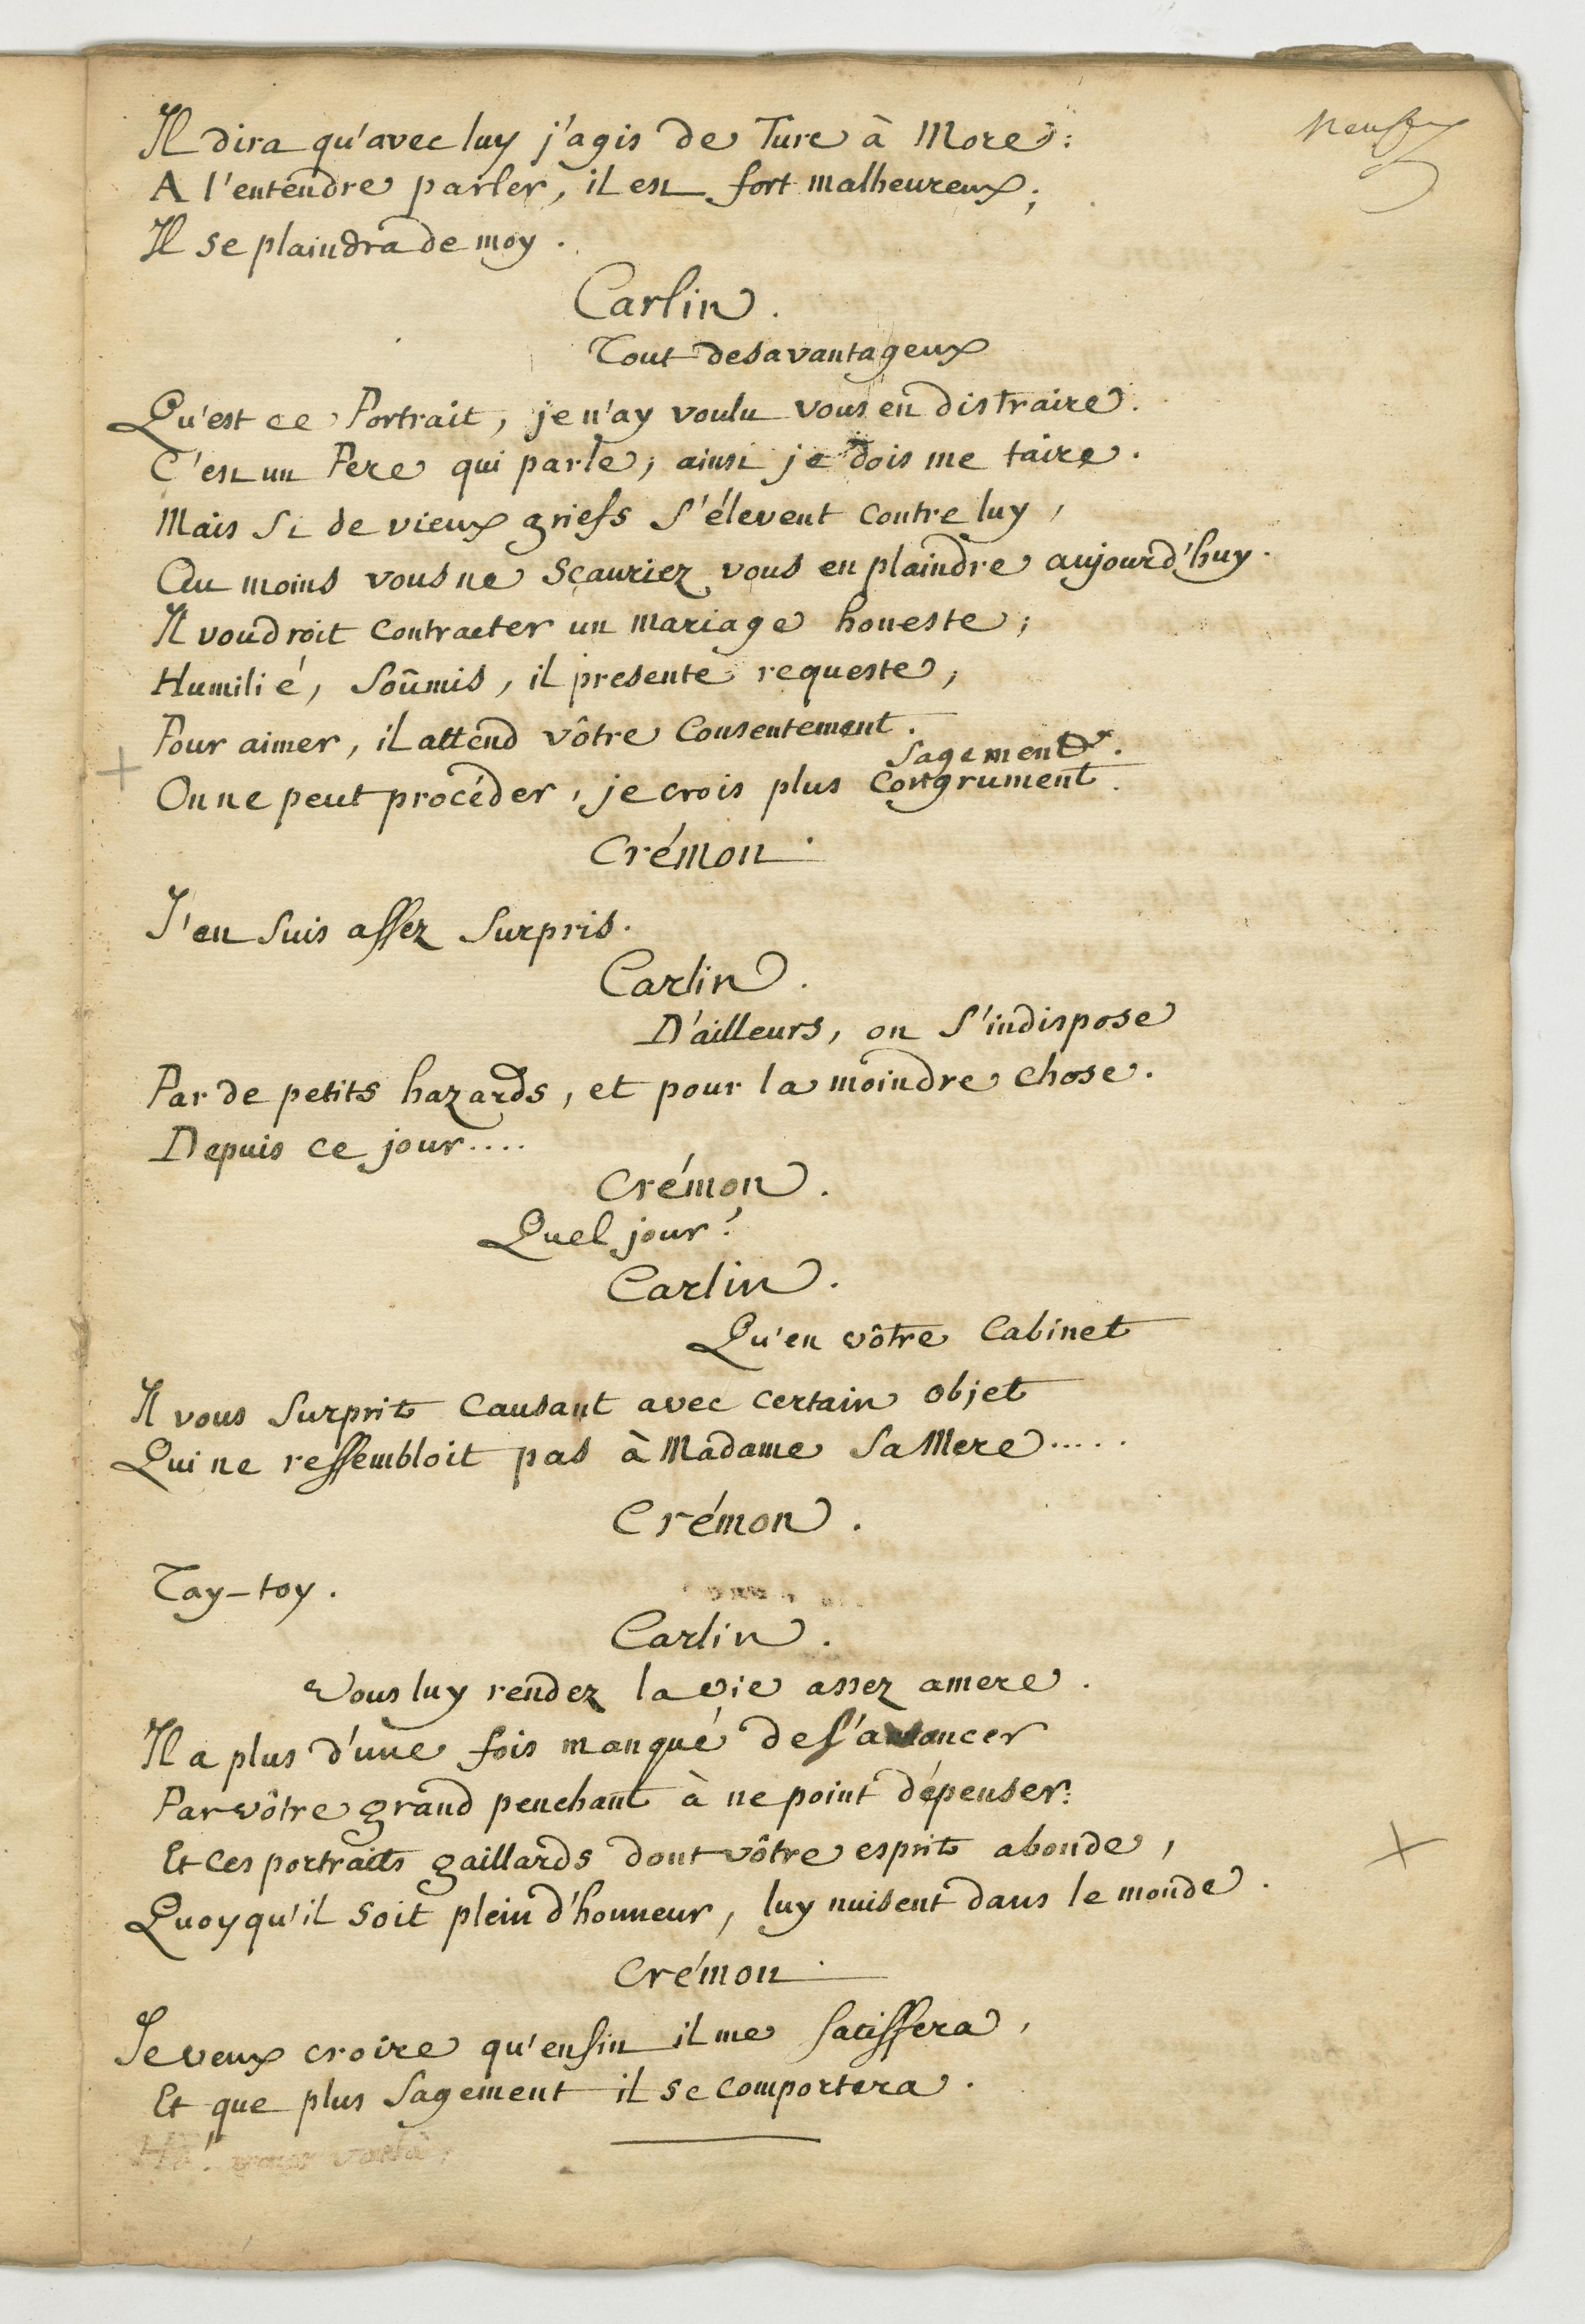 neuf
Il dira qu'avec luy j'agis de Turc à More:
A l'entendre parler, il est fort malheureux;
Il se plaindra de moy.
Carlin.
Tout desavantageux
Qu'est ce Portrait, je n'ay voulu vous en distraire.
C'est un Pere qui parle; ainsi je dois me taire.
Mais si de vieux griefs s'élevent contre luy,
Au moins vous ne sçauriez vous en plaindre aujourd'huy.
Il voudroit contracter un mariage honeste;
Humilié, soûmis, il presente requeste,
Pour aimer, il attend vôtre Consentement.
sagement.
On ne peut procéder, je crois plus Congrument.
Crémon.
J'en suis assez surpris.
Carlin.
D'ailleurs, on s'indispose
Par de petits hazards, et pour la moindre chose.
Depuis ce jour....
Crémon.
Quel jour?
Carlin.
Qu'en vôtre Cabinet
Il vous surprit causant avec certain objet
Qui ne ressembloit pas à Madame sa Mere.....
Crémon.
Tay-toy.
Carlin.
Vous luy rendez la vie assez amere.
Il a plus d'une fois manqué de s'avancer
Par vôtre grand penchant à ne point dépenser:
Et ces portraits gaillards dont vôtre esprit abonde,
Quoyqu'il soit plein d'honneur, luy nuisent dans le monde.
Crémon.
Je veux croire qu'enfin il me satisfera,
Et que plus sagement il se comportera.